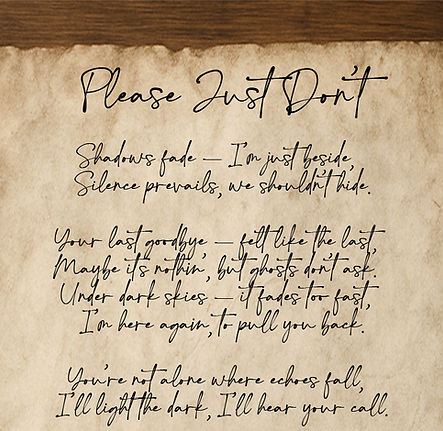 Please Just Don't
Shadows fade — I'm just beside,
Silence prevails, we shouldn't hide.
Your last goodbye — felt like the last,
Maybe it's nothin', but ghosts don't ask.
Under dark skies — it fades too fast,
I'm here again, to pull you back.
You're not alone where echoes fall,
I'll light the dark, I'll hear your call.